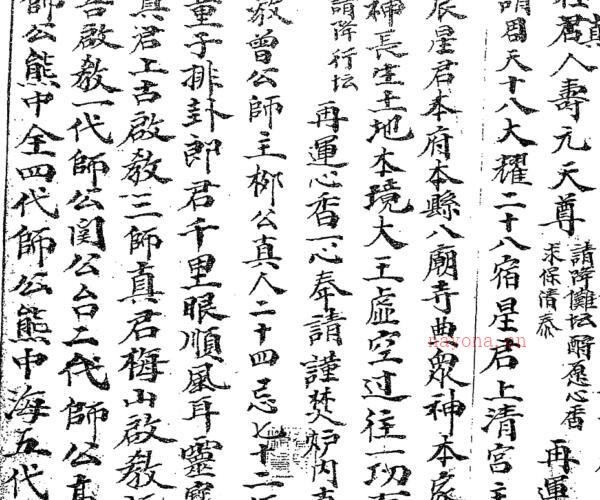 真
君入壽元天尊 請降儺坛酧愿心香 求保清泰 再運
請周天十八大耀二十八宿星君上清宮主
辰星君本府本縣八廟寺典眾神本家
神長生土地本境大王虛空过往一切
請降行坛 再運心香一心奉請謹焚炉内
教曾公師主柳公真人二十四忌七十二
童子排卦郎君千里眼順風耳靈
真君上古啟教三師真君梅山啟教
啟教一代師公闵公台二代師公
師公熊中全四代師公熊中海五代
nayona.cn